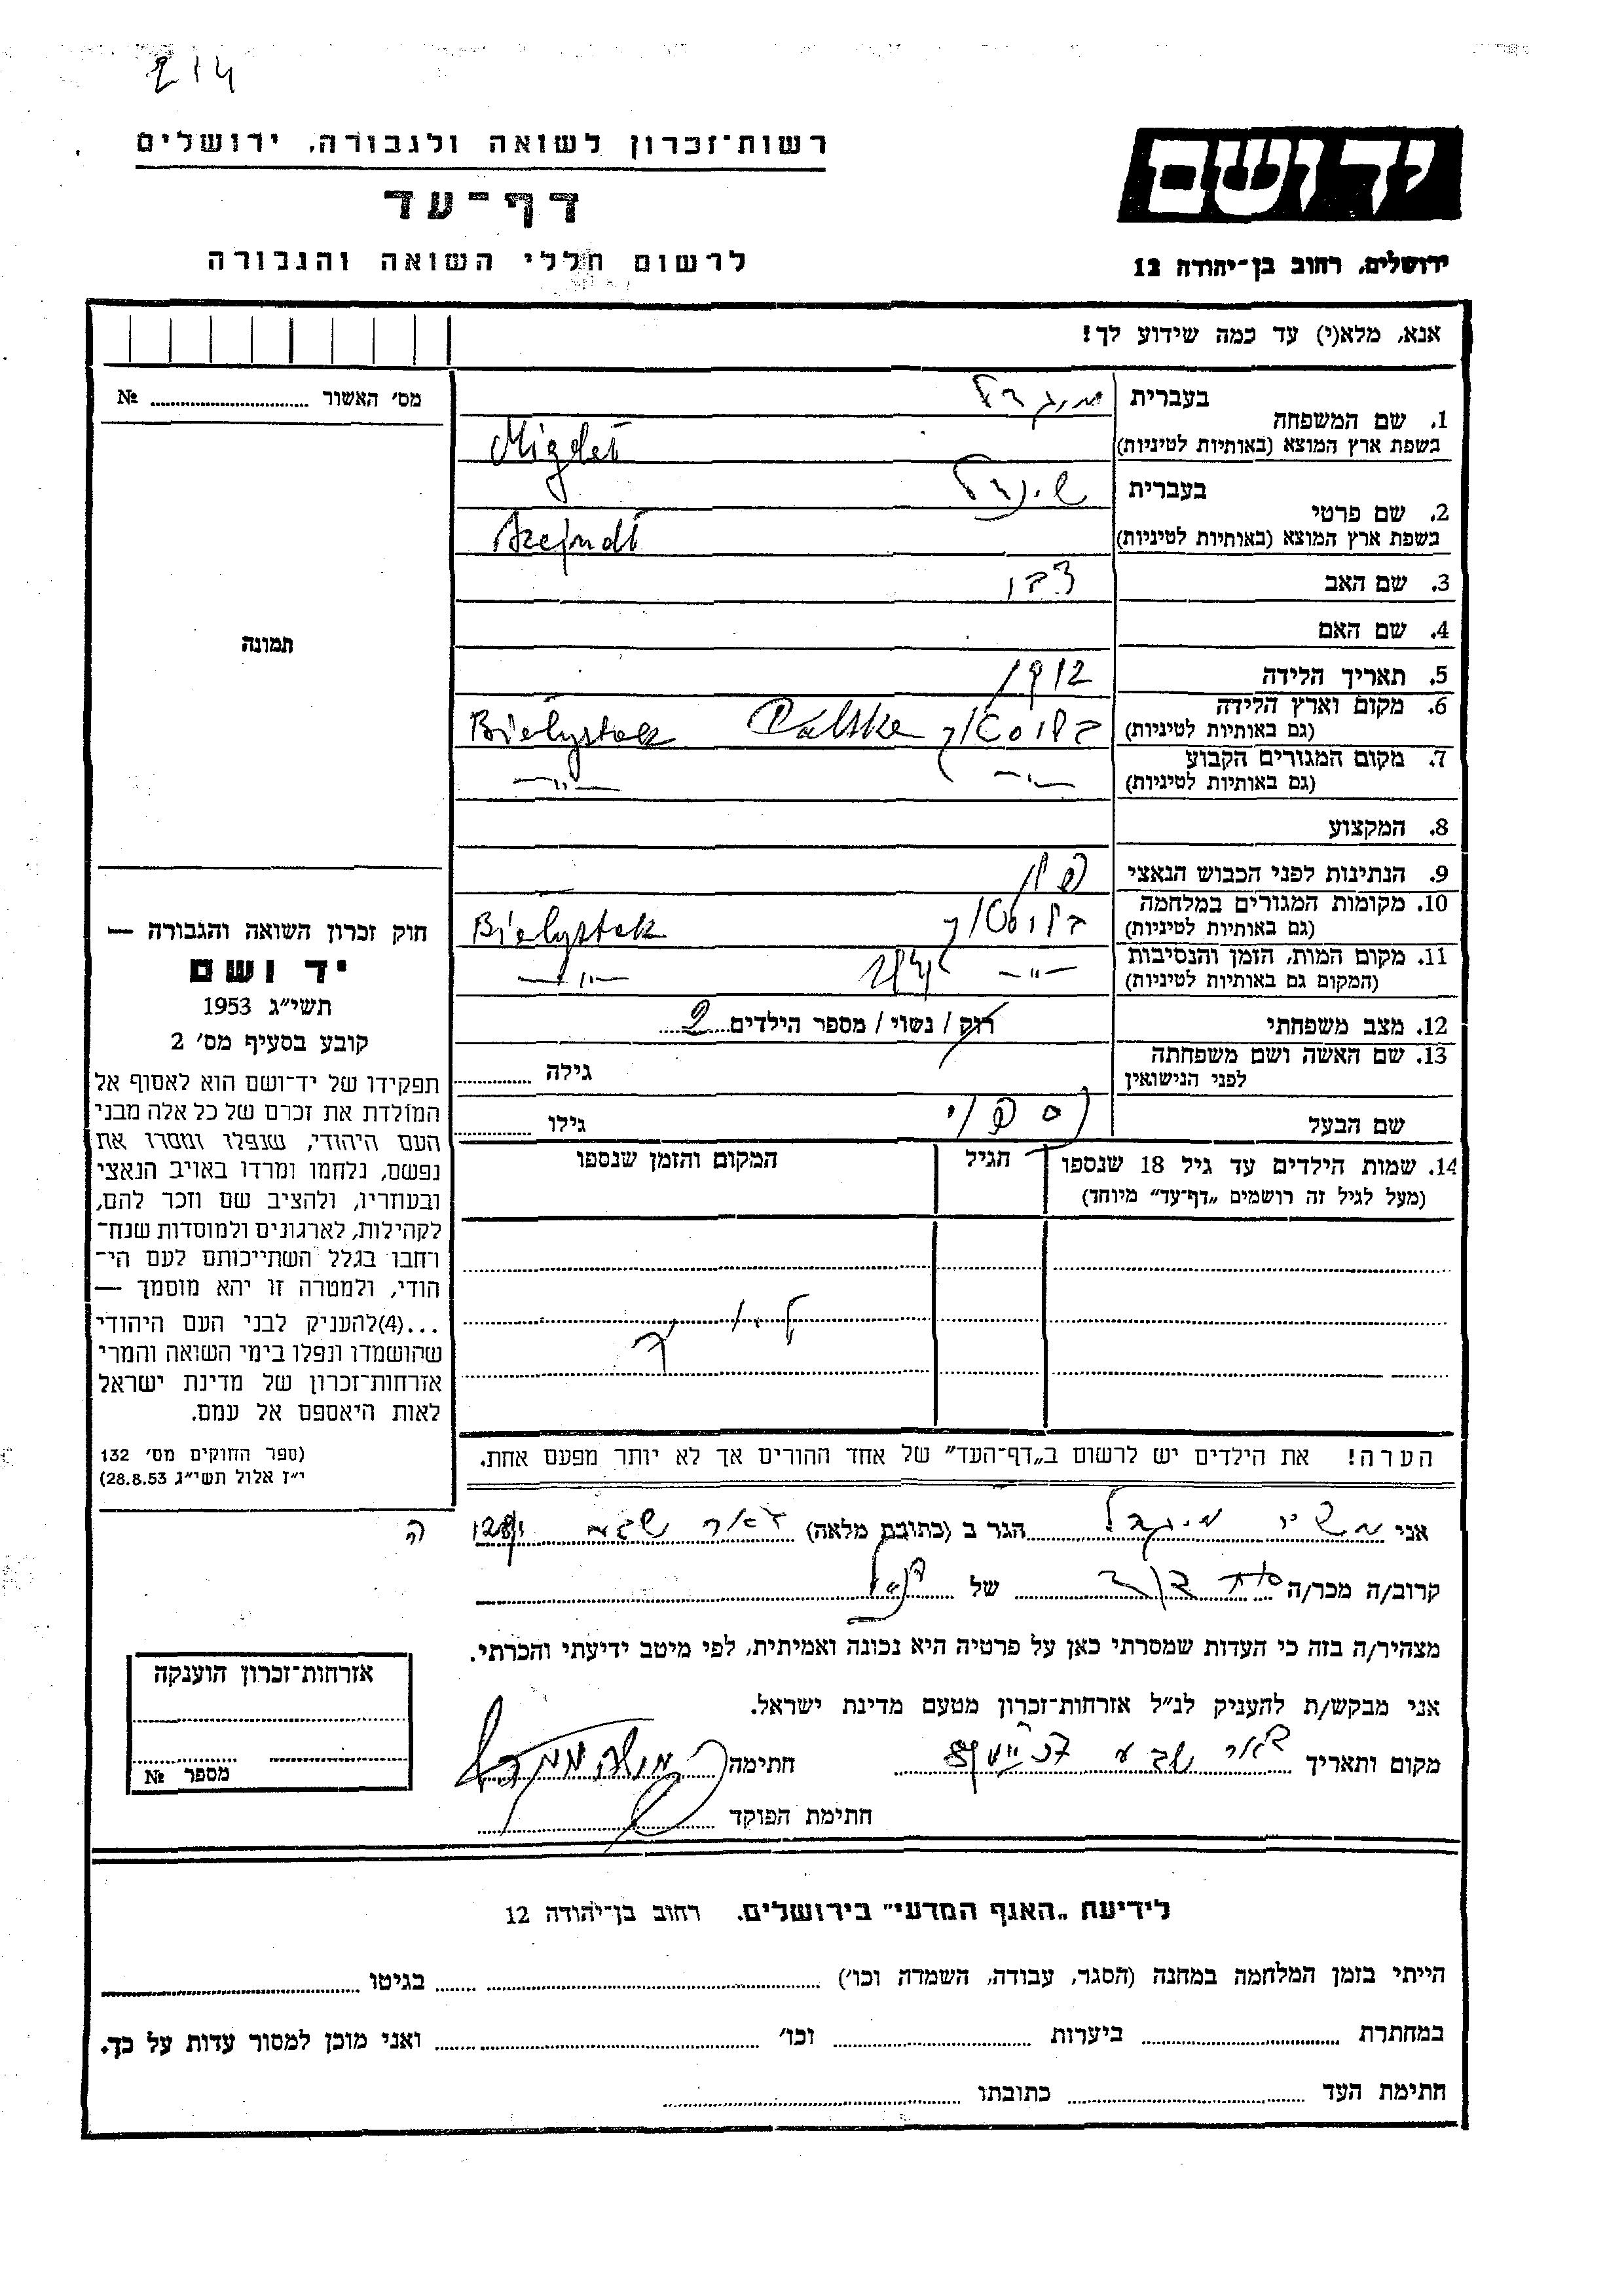 214
רשות־זכרון לשואה ולגבורה, ירושלים
דף־עד
לרשום חללי השואה והגבורה
יד ושם
ירושלים, רחוב בן־יהודה 12
אנא, מלא(י) עד כמה שידוע לך!
מס׳ האשור № 
1. שם המשפחה
בעברית מיגדל
בשפת ארץ המוצא (באותיות לטיניות) Migdał
2. שם פרטי
בעברית שיינדל
בשפת ארץ המוצא (באותיות לטיניות) Szejndł
3. שם האב
4. שם האם
5. תאריך הלידה 1912
6. מקום וארץ הלידה
(גם באותיות לטיניות) ביאליסטוק Polska Białystok
7. מקום המגורים הקבוע
(גם באותיות לטיניות) —״— —״—
8. המקצוע
9. הנתינות לפני הכבוש הנאצי
10. מקומות המגורים במלחמה
(גם באותיות לטיניות) ביאליסטוק Białystok
11. מקום המות, הזמן והנסיבות
(המקום גם באותיות לטיניות) —״— —״—
12. מצב משפחתי רוק / נשוי / מספר הילדים 2
13. שם האשה ושם משפחתה
לפני הנישואין גילה
שם הבעל גילו
14. שמות הילדים עד גיל 18 שנספו הגיל המקום והזמן שנספו
(מעל לגיל זה רושמים „דף־עד״ מיוחד)
הערה! את הילדים יש לרשום ב„דף־העד״ של אחד ההורים אך לא יותר מפעם אחת.
תמונה
חוק זכרון השואה והגבורה —
יד ושם
תשי״ג 1953
קובע בסעיף מס׳ 2
תפקידו של יד־ושם הוא לאסוף אל
המולדת את זכרם של כל אלה מבני
העם היהודי, שנפלו ומסרו את
נפשם, נלחמו ומרדו באויב הנאצי
ובעוזריו, ולהציב שם וזכר להם,
לקהילות, לארגונים ולמוסדות שנח־
רחבו בגלל השתייכותם לעם הי־
הודי, ולמטרה זו יהא מוסמך —
...(4)להעניק לבני העם היהודי
שהושמדו ונפלו בימי השואה והמרי
אזרחות־זכרון של מדינת ישראל
לאות היאספם אל עמם.
(ספר החוקים מס׳ 132
י״ז אלול תשי״ג 28.8.53)
אני מיגדל הגר ב (כתובת מלאה) באר שבע
קרוב/ה מכר/ה של
מצהיר/ה בזה כי העדות שמסרתי כאן על פרטיה היא נכונה ואמיתית, לפי מיטב ידיעתי והכרתי.
אני מבקש/ת להעניק לנ״ל אזרחות־זכרון מטעם מדינת ישראל.
מקום ותאריך באר שבע חתימה
חתימת הפוקד
אזרחות־זכרון הוענקה
מספר №
לידיעת „האגף המדעי״ בירושלים. רחוב בן־יהודה 12
הייתי בזמן המלחמה במחנה (הסגר, עבודה, השמדה וכו׳) בגיטו
במחתרת ביערות וכו׳ ואני מוכן למסור עדות על כך.
חתימת העד כתובתו